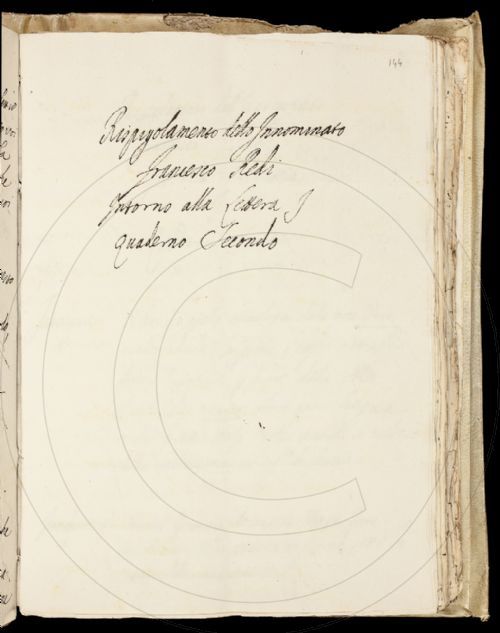 144
Rispigolamento dello Innominato
Francesco Redi
Intorno alla Lettera I
Quaderno Secondo